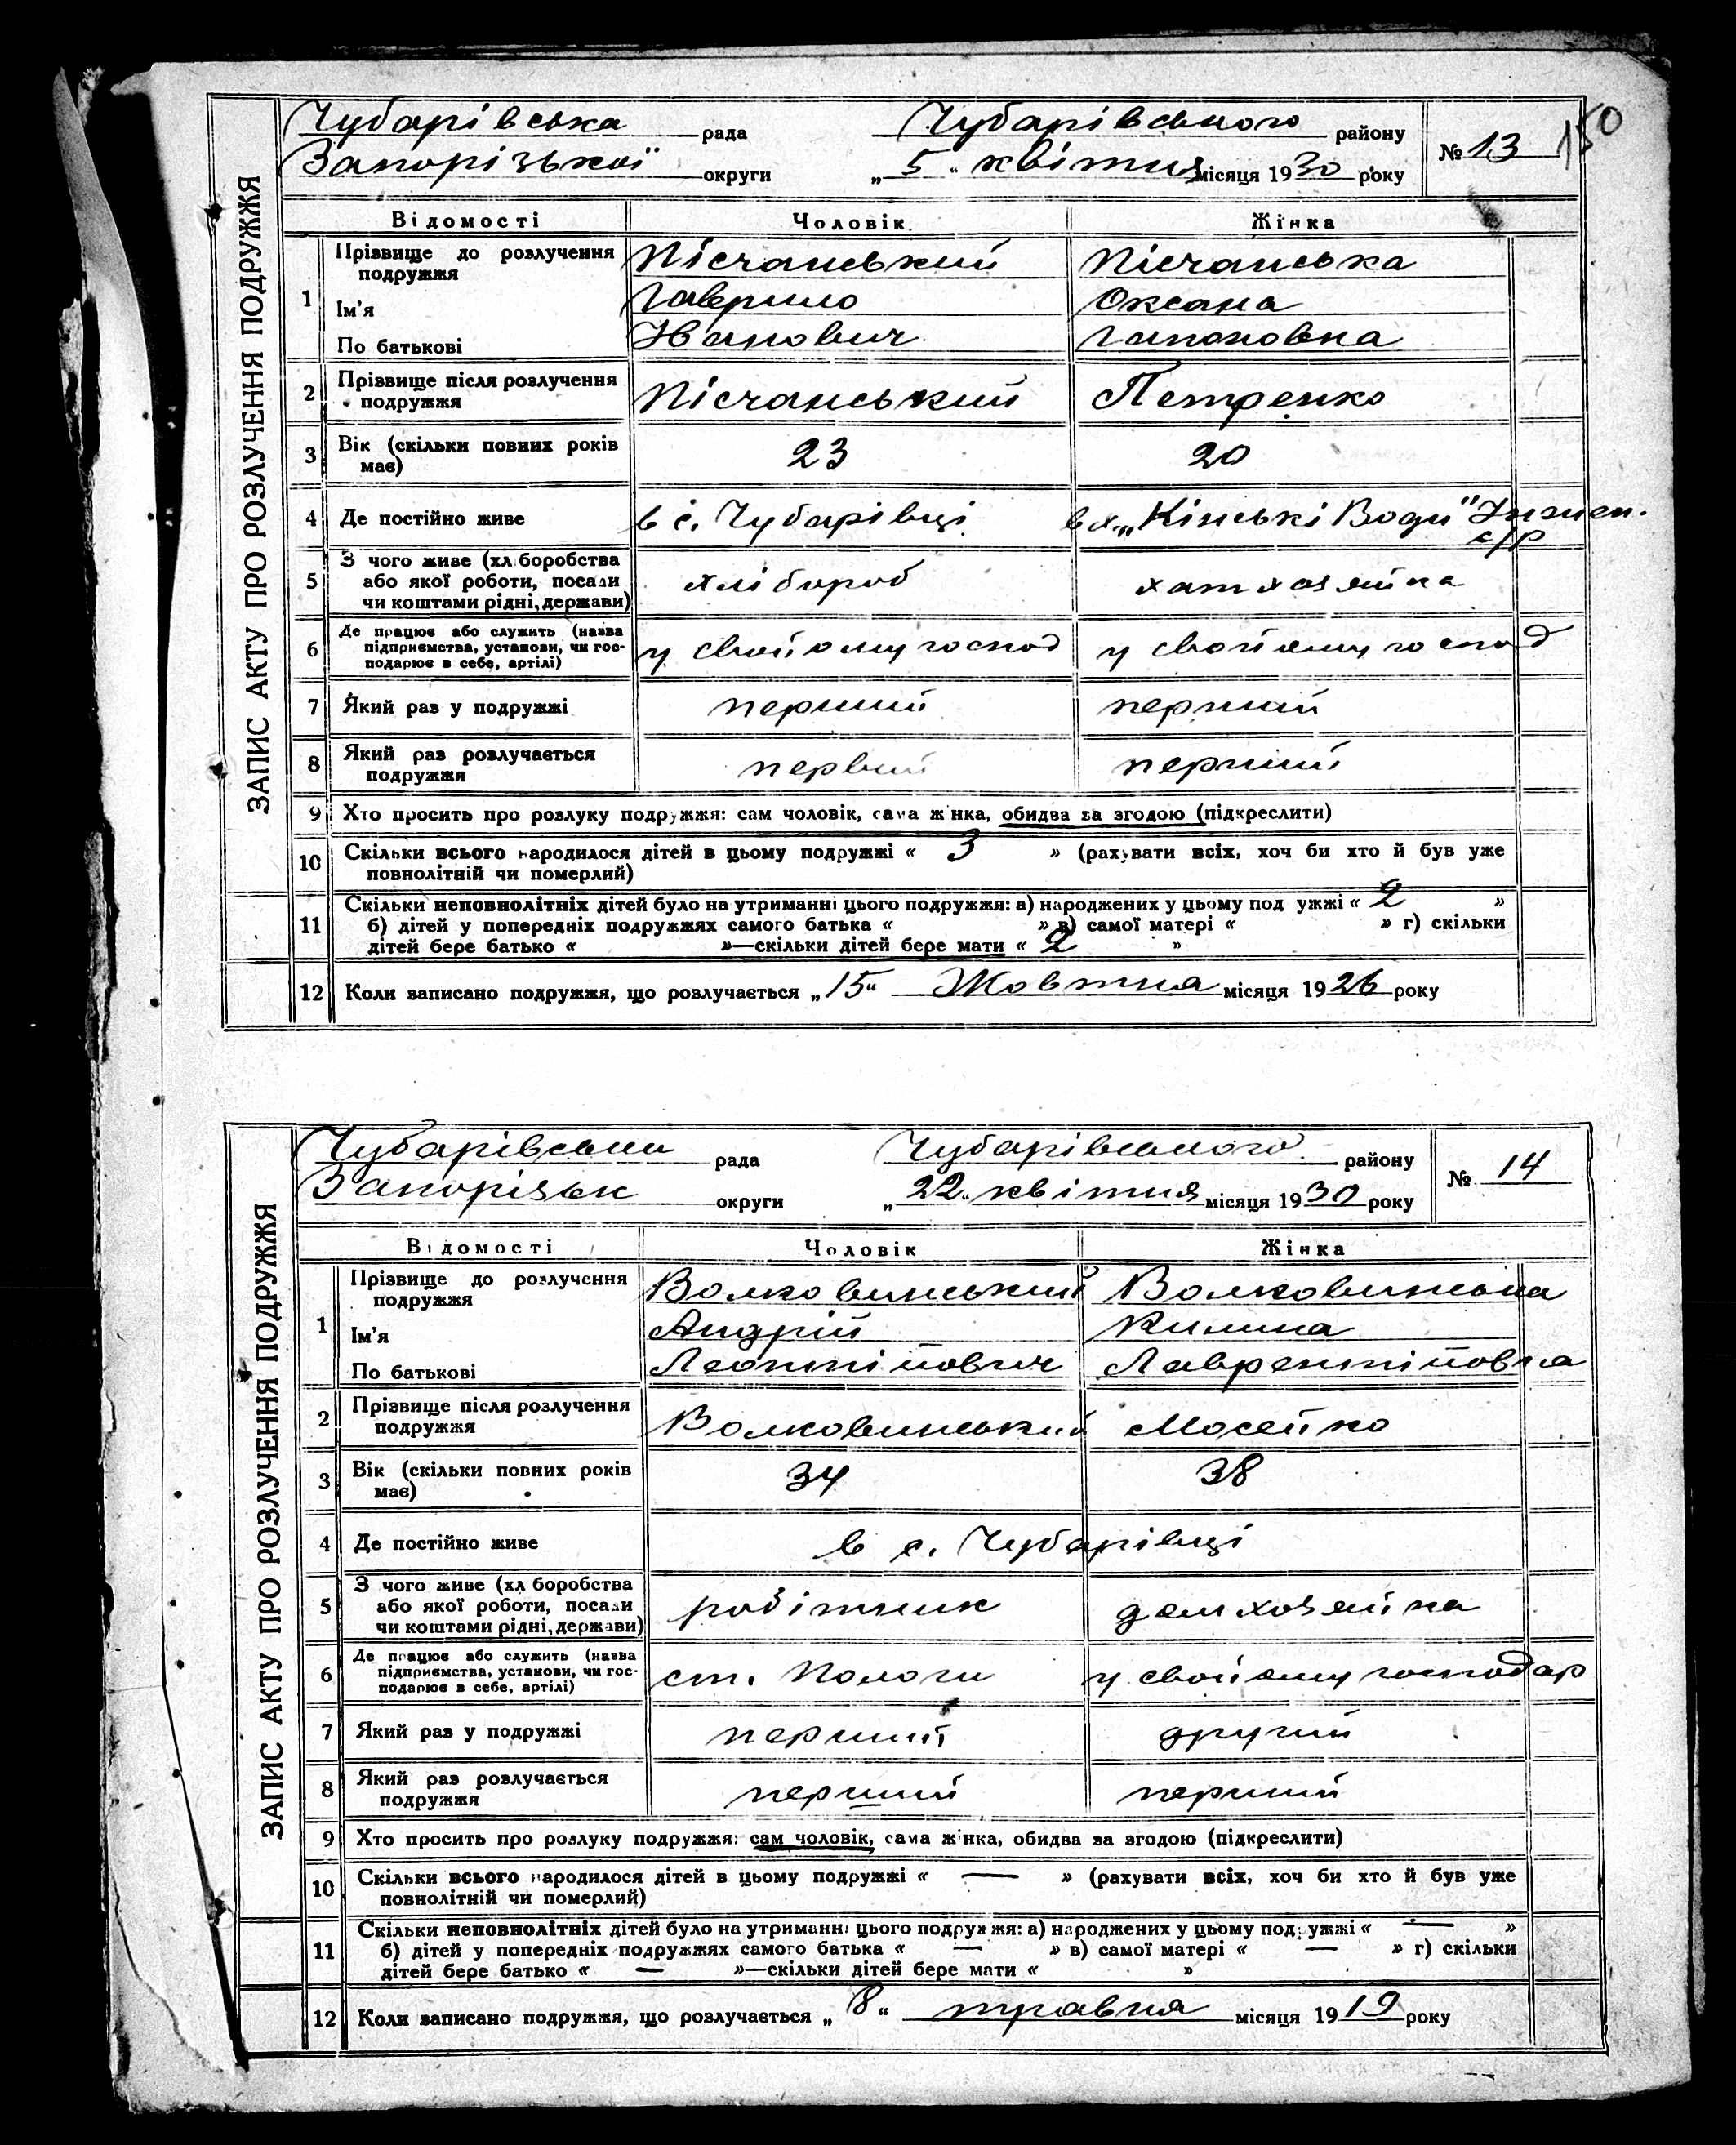 150
ЗАПИС АКТУ ПРО РОЗЛУЧЕННЯ ПОДРУЖЖЯ
Чубарівська рада Чубарівського району
Запорізької округи „5“ квітня місяця 1930 року
№ 13
Відомості Чоловік Жінка
1 Прізвище до розлучення подружжя Пісчанський Пісчанська
Ім'я Гаврило Оксана
По батькові Иванович Гапоновна
2 Прізвище після розлучення подружжя Пісчанський Петренко
3 Вік (скільки повних років має) 23 20
4 Де постійно живе в с. Чубарівці в х. „Кінські Води" с/р
5 З чого живе (хліборобства або якої роботи, посади чи коштами рідні, держави) хлібороб хатхозяйка
6 Де працює або служить (назва підприємства, установи, чи господарює в себе, артілі) у свойому господ у свойому господ
7 Який раз у подружжі перший перший
8 Який раз розлучається подружжя первий перший
9 Хто просить про розлуку подружжя: сам чоловік, сама жінка, обидва за згодою (підкреслити)
10 Скільки всього народилося дітей в цьому подружжі « 3 » (рахувати всіх, хоч би хто й був уже
повнолітній чи померлий)
11 Скільки неповнолітніх дітей було на утриманні цього подружжя: а) народжених у цьому подружжі « 2 »
б) дітей у попередніх подружжях самого батька « » в) самої матері « » г) скільки
дітей бере батько « »—скільки дітей бере мати « 2 »
12 Коли записано подружжя, що розлучається „15“ Жовтня місяця 1926 року
ЗАПИС АКТУ ПРО РОЗЛУЧЕННЯ ПОДРУЖЖЯ
Чубарівська рада Чубарівського району
Запорізьк округи „22“ квітня місяця 1930 року
№ 14
Відомості Чоловік Жінка
1 Прізвище до розлучення подружжя Волковинський Волковинська
Ім'я Андрій Килина
По батькові Леонтійович Лаврентійовна
2 Прізвище після розлучення подружжя Волковинський Мосейко
3 Вік (скільки повних років має) 34 38
4 Де постійно живе в с. Чубарівці
5 З чого живе (хліборобства або якої роботи, посади чи коштами рідні, держави) робітник домхозяйка
6 Де працює або служить (назва підприємства, установи, чи господарює в себе, артілі) ст. Пологи у свойому господар
7 Який раз у подружжі перший другий
8 Який раз розлучається подружжя перший перший
9 Хто просить про розлуку подружжя: сам чоловік, сама жінка, обидва за згодою (підкреслити)
10 Скільки всього народилося дітей в цьому подружжі « — » (рахувати всіх, хоч би хто й був уже
повнолітній чи померлий)
11 Скільки неповнолітніх дітей було на утриманні цього подружжя: а) народжених у цьому подружжі « — »
б) дітей у попередніх подружжях самого батька « — » в) самої матері « — » г) скільки
дітей бере батько « — »—скільки дітей бере мати « »
12 Коли записано подружжя, що розлучається „8“ травня місяця 1919 року